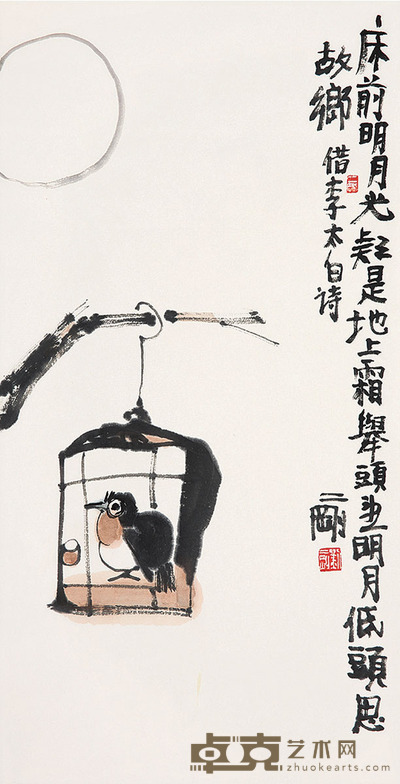 床前明月光疑是地上霜舉頭望明月低頭思
故鄉 借李太白诗
二剛
卓克艺术网
zhuokearts.com